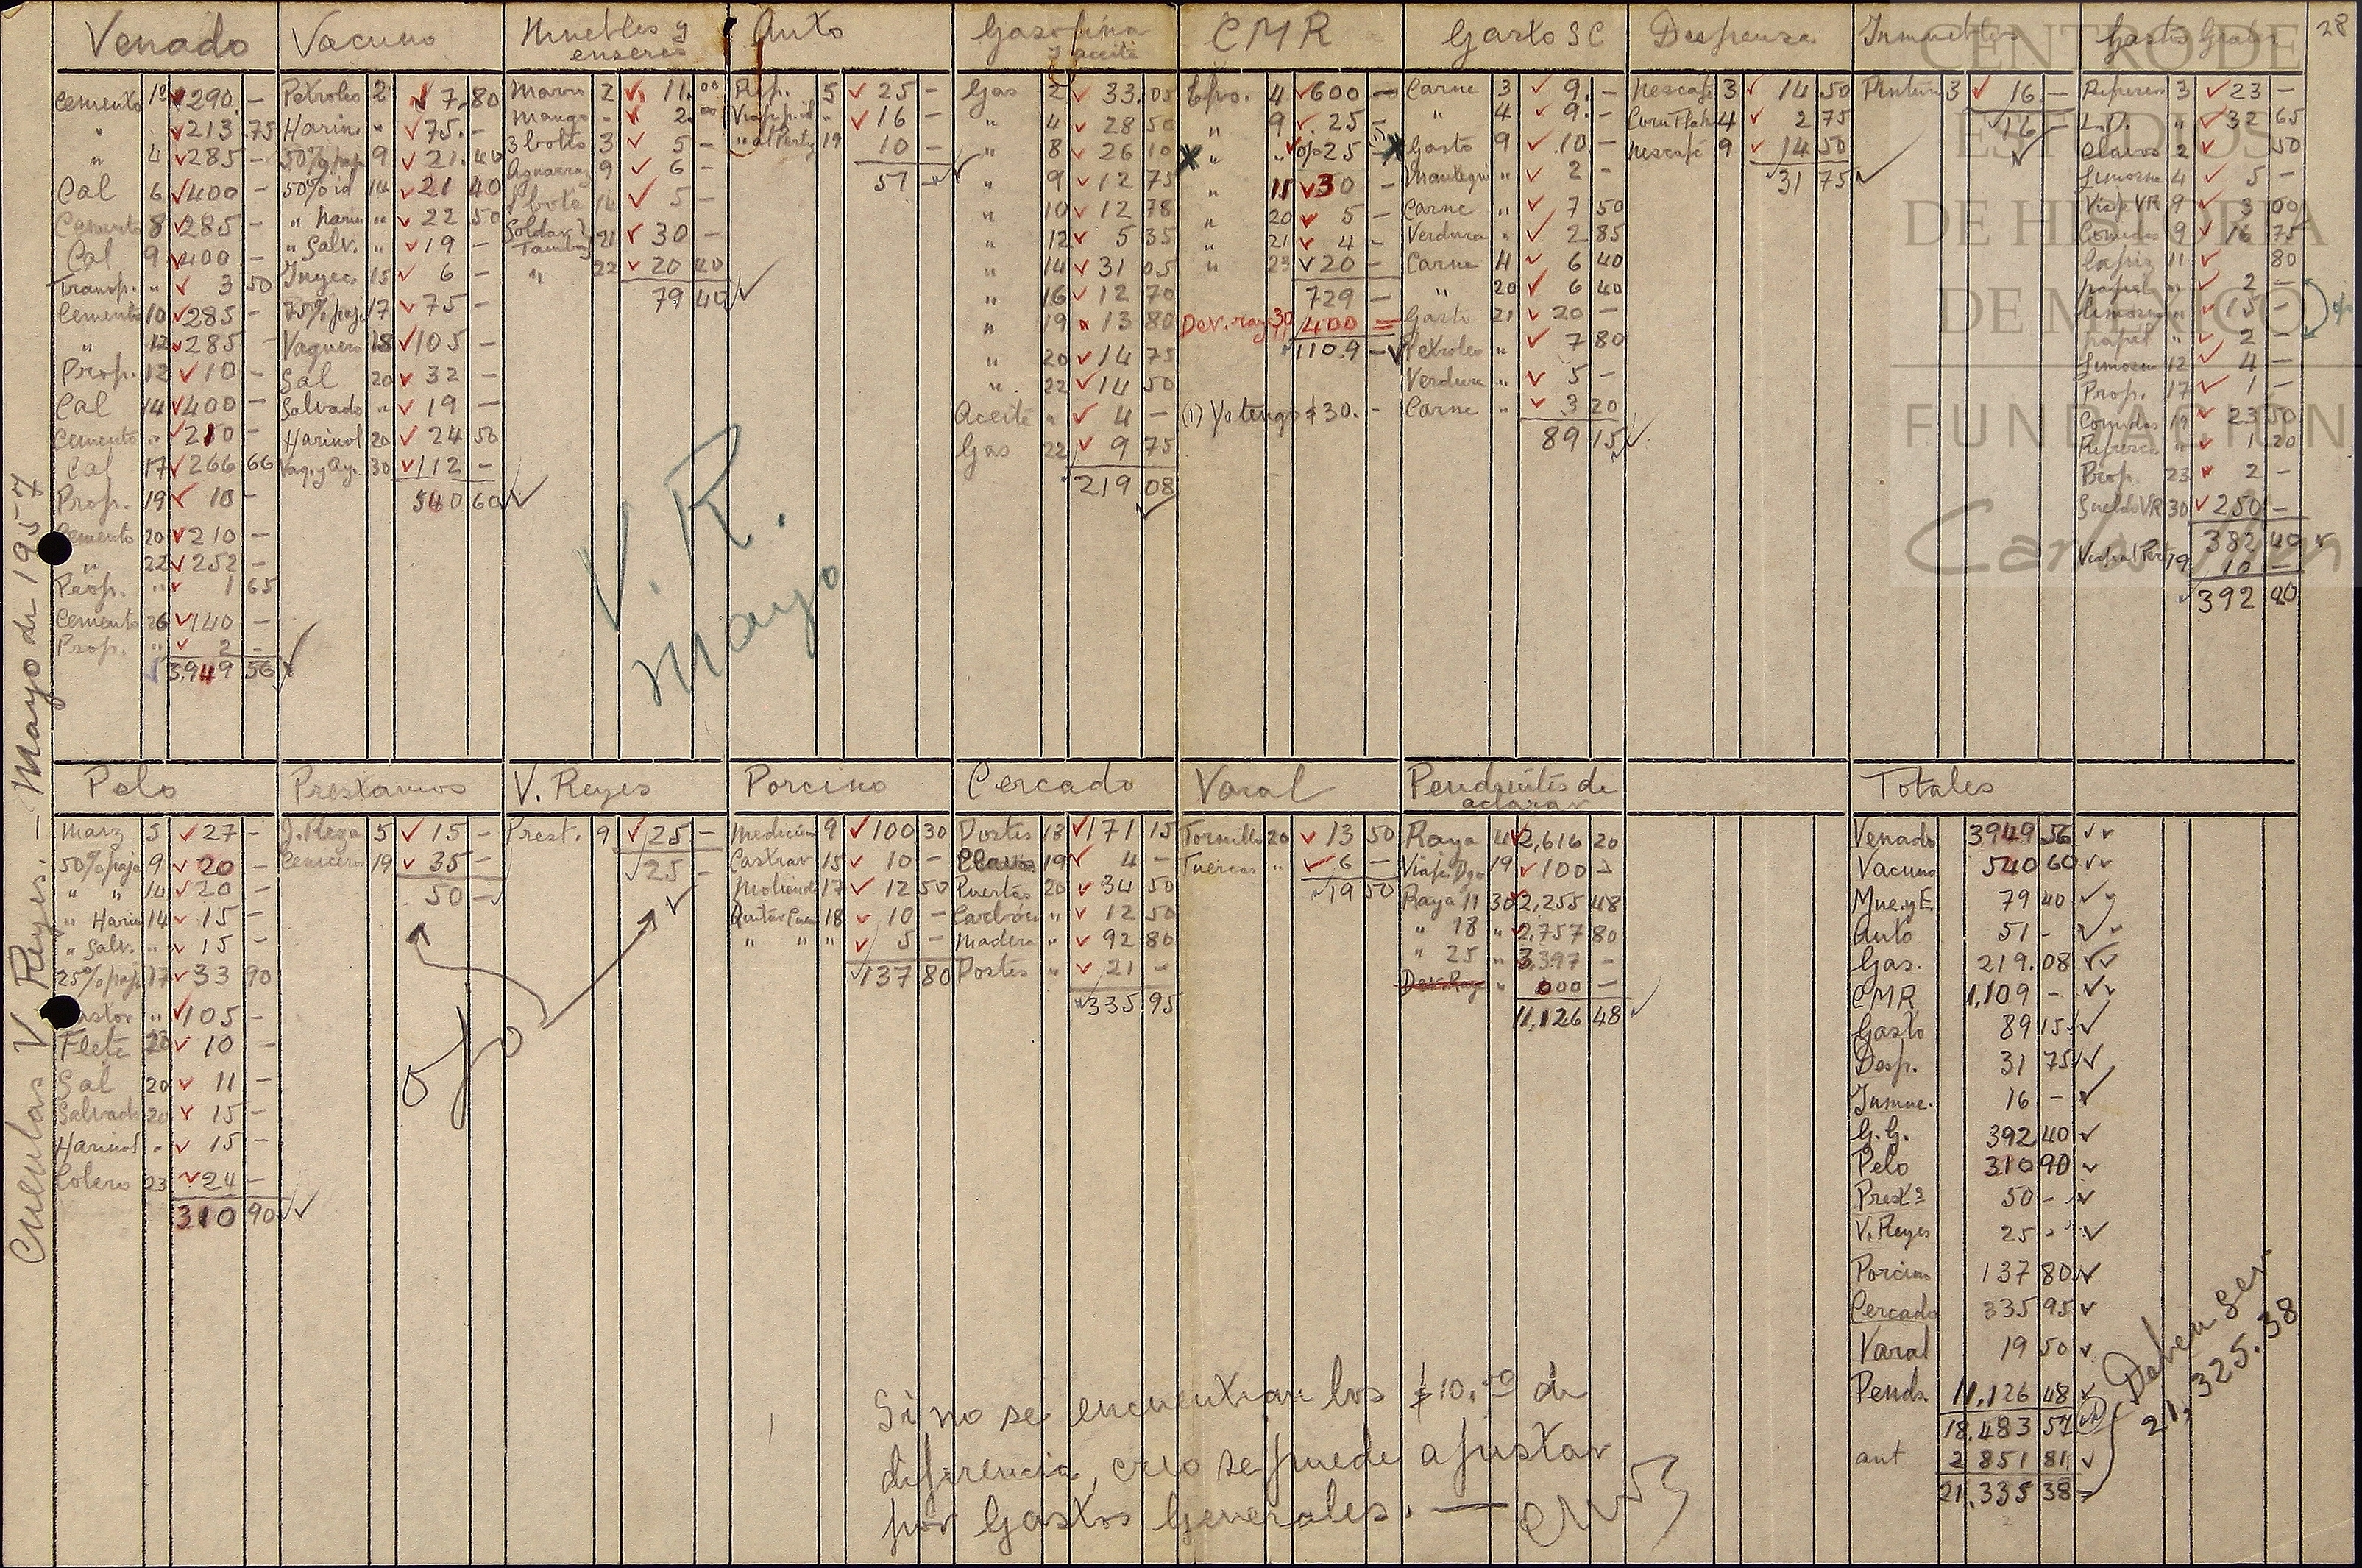 Cuentas V. Reyes. — Mayo de 1957
28
Venado
Cemento 1º 290 —
" 213 75
" 4 285 —
Cal 6 400 —
Cemento 8 285 —
Cal 9 400 —
Transp. " 3 50
Cemento 10 285 —
" 12 285 —
Prop. 12 10 —
Cal 14 400 —
Cemento " 210 —
Cal 17 266 66
Prop. 19 10 —
Cemento 20 210 —
" 22 252 —
Prop. " 1 65
Cemento 26 140 —
Prop. " 2 —
3,949 56
Vacuno
Petroleo 2 7.80
Harin. " 75. —
50% paja 9 21.40
50% id 14 21 40
" Harin " 22 50
" Salv. " 19 —
Inyec 15 6 —
75% paja 17 75 —
Vaquero 18 105 —
Sal 20 32 —
Salvado " 19 —
Harinol 20 24 50
Vaq. y Ay. 30 112 —
540 60
Muebles y
enseres
2 11.00
Mango " 2.00
3 botes 3 5 —
Aguarras 9 6 —
1 bote 14 5 —
Soldar 2
Tambos 21 30 —
" 22 20 40
79 40
Auto
Rep. 5 25 —
" 16 —
19 10 —
51 —
Gasolina
y aceite
Gas 2 33.05
" 4 28 50
" 8 26 10
" 9 12 75
" 10 12 78
" 12 5 35
" 14 31 05
" 16 12 70
" 19 13 80
" 20 14 75
" 22 14 50
Aceite " 4 —
Gas 22 9 75
219 08
CMR
4 600 —
" 9 25 —
" " 25 —
" 11 30 —
" 20 5 —
" 21 4 —
" 23 20 —
729 —
Dev. raya 30 400 =
1109 —
(1) Yo tengo $30. —
Gasto SC
Carne 3 9. —
" 4 9. —
Gasto 9 10. —
Mantequi " 2 —
Carne " 7 50
Verdura " 2 85
Carne 11 6 40
" 20 6 40
Gasto 21 20 —
Petroleo " 7 80
Verdura " 5 —
Carne " 3 20
89 15
Despensa
Nescafe 3 14 50
Corn Flake 4 2 75
Nescafé 9 14 50
31 75
Inmuebles
Pintura 3 16 —
16 —
Gastos Grales
Refrescos 3 23 —
L.D. " 32 65
Clavos 2 50
Limosna 4 5 —
Viaje VR 9 3 00
Comidas 9 16 75
lapiz 11 80
papel " 2 —
Limosna " 15 —
papel " 2 —
Limosna 12 4 —
Prop. 17 1 —
Comidas 19 23 50
Refresco " 1 20
Prop 23 2 —
Sueldo VR 30 250 —
382 40
19 10 —
392 40
V. R.
Mayo
CENTRO DE
ESTUDIOS
DE HISTORIA
DE MEXICO
FUNDACIÓN
Carlos Slim
Pelo
Maiz 5 27 —
50% paja 9 20 —
" " 14 20 —
" Harin 14 15 —
" Salv. " 15 —
25% paja 17 33 90
Pastor " 105 —
Flete 20 10 —
Sal 20 11 —
Salvado 20 15 —
Harinol " 15 —
23 24 —
310 90
Prestamos
J. Meza 5 15 —
Ceniceros 19 35 —
50 —
V. Reyes
Prest. 9 25 —
25 —
ojo
Porcino
Medicina 9 100 30
Castrar 15 10 —
Molienda 17 12 50
18 10 —
" " " 5 —
137 80
Cercado
Postes 18 171 15
Clavos 19 4 —
Puertas 20 34 50
Carbón " 12 50
Madera " 92 80
Postes " 21 —
335.95
Varal
Tornillo 20 13 50
Tuercas " 6 —
19 50
Pendientes de
aclarar
Raya 4 2,616 20
Viaje Dgo 19 100 —
Raya 11 30 2,255 48
" 18 " 2,757 80
" 25 " 3,397 —
Dev. Raya " 000 —
11,126 48
Totales
Venado 3949 56
Vacuno 540 60
Mue. y E. 79 40
Auto 51 —
Gas. 219.08
CMR 1,109 —
Gasto 89 15
Desp. 31 75
Inmue. 16 —
G. G. 392 40
Pelo 310 90
Prest.s 50 —
V. Reyes 25 —
Porcino 137 80
Cercado 335 95
Varal 19 50
Pends. 11,126 48
18,483 57
ant 2 851 81
21,335 38
Deben Ser
21,325.38
Si no se encuentran los $10.00 de
diferencia, creo se puede ajustar
por Gastos Generales. —